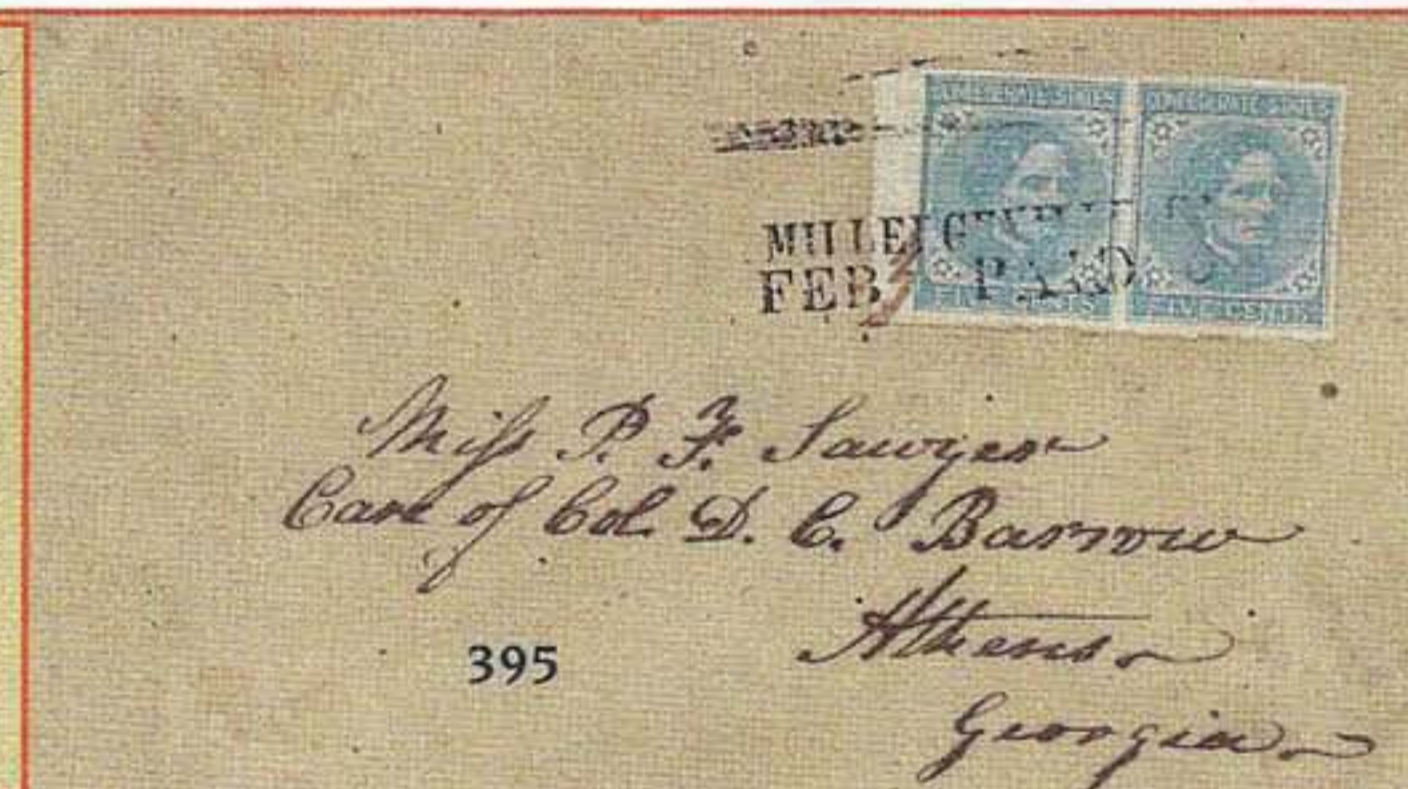 CONFEDERATE STATES CONFEDERATE STATES
FIVE CENTS FIVE CENTS
FEB PAID
Miss P. F. Sawyer
Care of Col. D. C. Barrow
Athens
Georgia
395